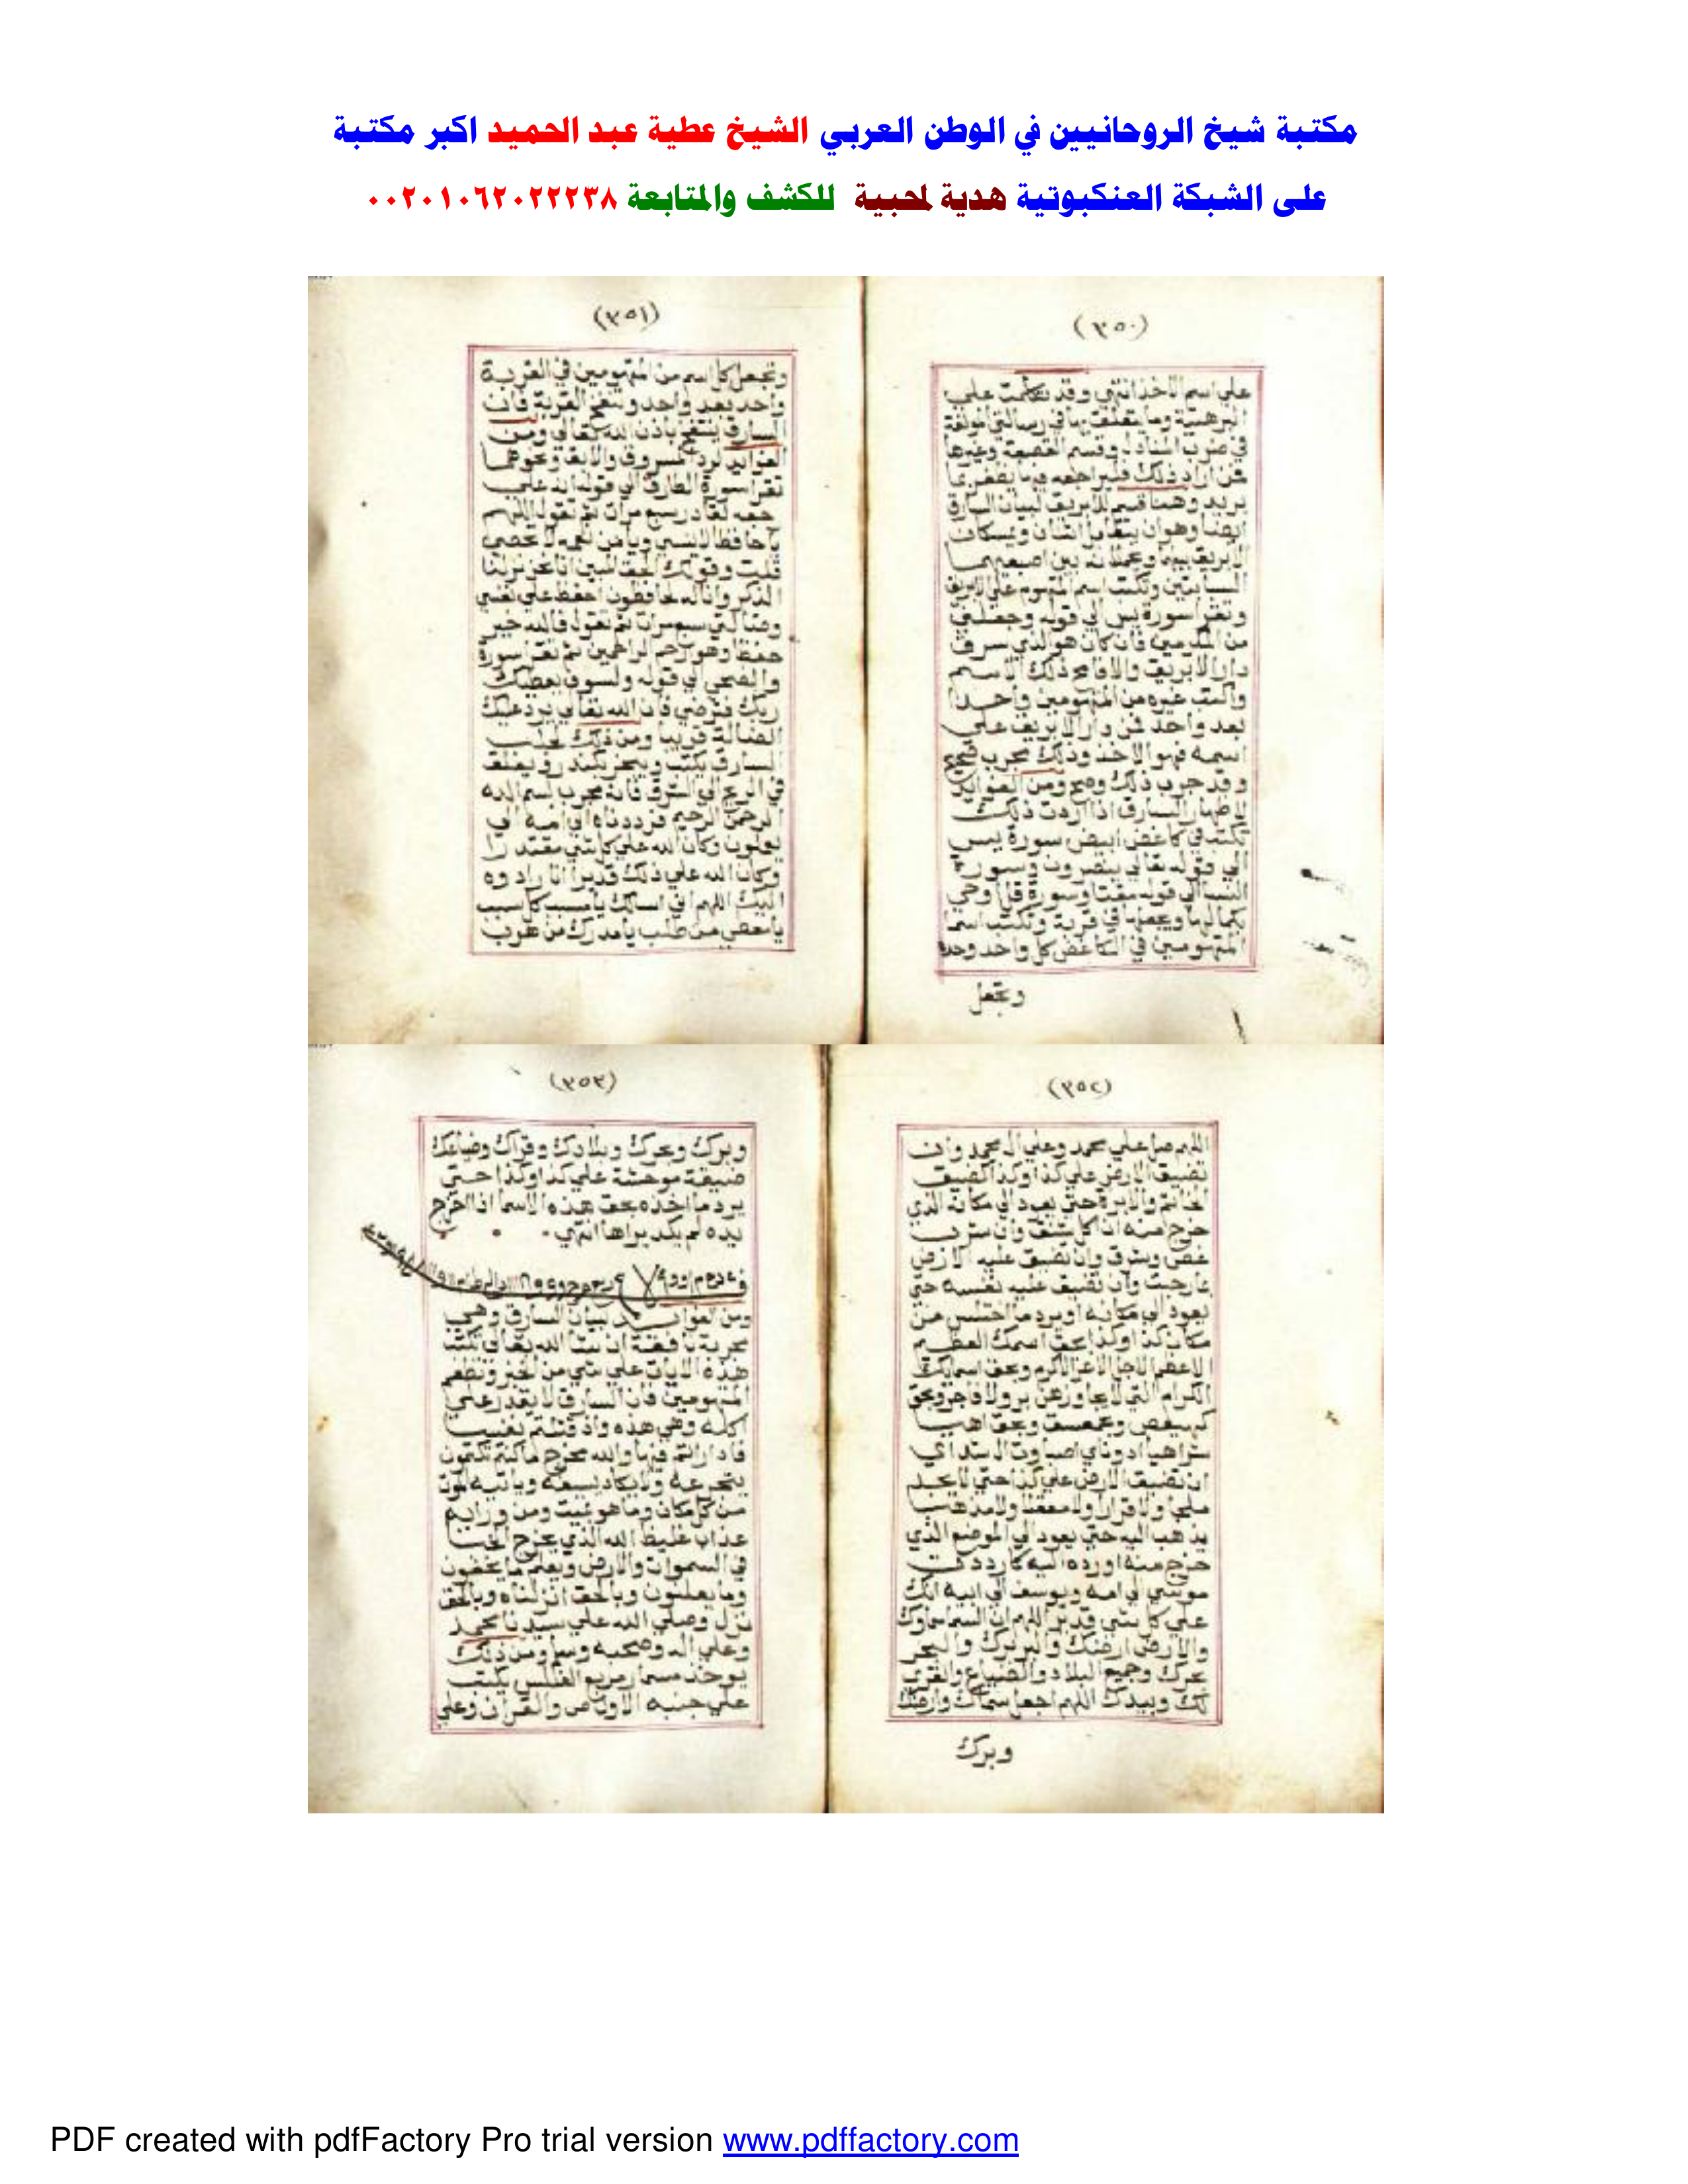 مكتبة شيخ الروحانيين في الوطن العربي الشيخ عطية عبد الحميد اكبر مكتبة
على الشبكة العنكبوتية هدية لمحبية للكشف والمتابعة ٠٠٢٠١٠٦٢٠٢٢٢٣٨
(٣٥٠)
على اسم الاخذ انتهي وقد تكلمت علي
البرهتية وما يتعلق بها في رسالتي مؤلفة
في ضرب المنادل وقسم وغيرها
فمن اراد ذلك فليراجعه
يريد وهنا قسم الابريق لبيان السارق
ايضا وهو ان يتقابل اثنان ويمسكان
الابريق بينهما ويجعلانه بين اصبعيهما
السبابتين وتكتب اسم المتهوم علي الابريق
وتقرا سورة يس الي قوله وجعلني
من المكرمين فان كان هو الذي سرق
دار الابريق والا فامح ذلك الاسم
واكتب غيره من المتهومين واحدا
بعد واحد فمن دار الابريق علي
اسمه فهو الاخذ وذلك مجرب صحيح
وقد جرب ذلك وصح ومن الفوايد
لاظهار السارق اذا اردت ذلك
تكتب في كاغض ابيض سورة يس
الي قوله تعالي يبصرون وسورة
النسا الي قوله مقيتا وسورة قل اوحي
بكمالها في قربة وتكتب اسما
المتهومين في الكاغض كل واحد وحده
وتجعل
(٣٥١)
وتجعل كل اسم من المتهومين في القربة
واحد بعد واحد وتنفخ القربة فان
السارق ينتفخ باذن الله تعالي ومن
الفوايد لرد المسروق والابق ونحوهما
تقرا سورة الطارق الي قوله انه علي
رجعه لقادر سبع مرات ثم تقول اللهم
يا حافظا لا ينسي ويا من نعمه لا تحصي
قلت وقولك الحق المبين انا نحن نزلنا
الذكر وانا له لحافظون احفظ علي نفسي
وضالتي سبع مرات ثم تقول فالله خير
حفظا وهو ارحم الراحمين ثم تقرا سورة
والضحي الي قوله ولسوف يعطيك
ربك فترضي فان الله تعالي يرد عليك
الضالة قريبا ومن ذلك لجلب
السارق يكتب ويبخر بكندر ويعلق
في الريح الي الشرق فانه مجرب بسم الله
الرحمن الرحيم فرددناه الي امه الي
يعلمون وكان الله علي كل شي مقتدرا
وكان الله علي ذلك قديرا انا رادوه
اليك اللهم اني اسالك يا مسبب كل سبب
يا معطي من طلب يا مدرك من هرب
(٣٥٢)
اللهم صل علي محمد وعلي ال محمد وان
تضيق الارض علي كذا وكذا كضيق
الخاتم والابرة حتي يعود الي مكانه الذي
خرج منه ان كل وان شرب
غص وشرق وان تضيق عليه الارض
بما رحبت وان تضيق عليه نفسه حتي
يعود الي مكانه او يرد ما اختلس من
مكان كذا وكذا بحق اسمك العظيم
الاعظم الاجل الاعز الاكرم وبحق اسمايك
الكرام التي لا يجاوزهن بر ولا فاجر وبحق
كهيعص وحمعسق وبحق اهيا
شراهيا ادوناي اصباوت ال شداي
ان تضيق الارض علي كذا حتي لا يجد
ملجا ولا قرارا ولا معقلا ولا مذهب
يذهب اليه حتي يعود الي الموضع الذي
خرج منه او رده اليه كما رددت
موسي الي امه ويوسف الي ابيه انك
علي كل شي قدير اللهم ان السما سماوك
والارض ارضك والبر برك والبحر
بحرك وجميع البلاد والضياع والقري
لك وبيدك اللهم اجعل سماك وارضك
وبرك
(٣٥٣)
وبرك وبحرك وبلادك وقراك وضياعك
ضيقة موحشة علي كذا وكذا حتي
يرد ما اخذه بحق هذه الاسما اذا اخرج
يده لم يكد يراها انتهي
ومن الفوايد لبيان السارق وهي
مجربة نافعة ان شا الله تعالي تكتب
هذه الايات علي شي من الخبز وتطعم
المتهومين فان السارق لا يقدر علي
اكله وهي هذه واذ قتلتم نفسا
فادارأتم فيها والله مخرج ما كنتم تكتمون
يتجرعه ولا يكاد يسيغه وياتيه الموت
من كل مكان وما هو بميت ومن ورايه
عذاب غليظ الله الذي يخرج الخب
في السموات والارض ويعلم ما يخفون
وما يعلنون وبالحق انزلناه وبالحق
نزل وصلي الله علي سيدنا محمد
وعلي اله وصحبه وسلم ومن ذلك
يوخذ مسمار مربع يكتب
علي جنبه الاول ص والقران وعلي
PDF created with pdfFactory Pro trial version www.pdffactory.com